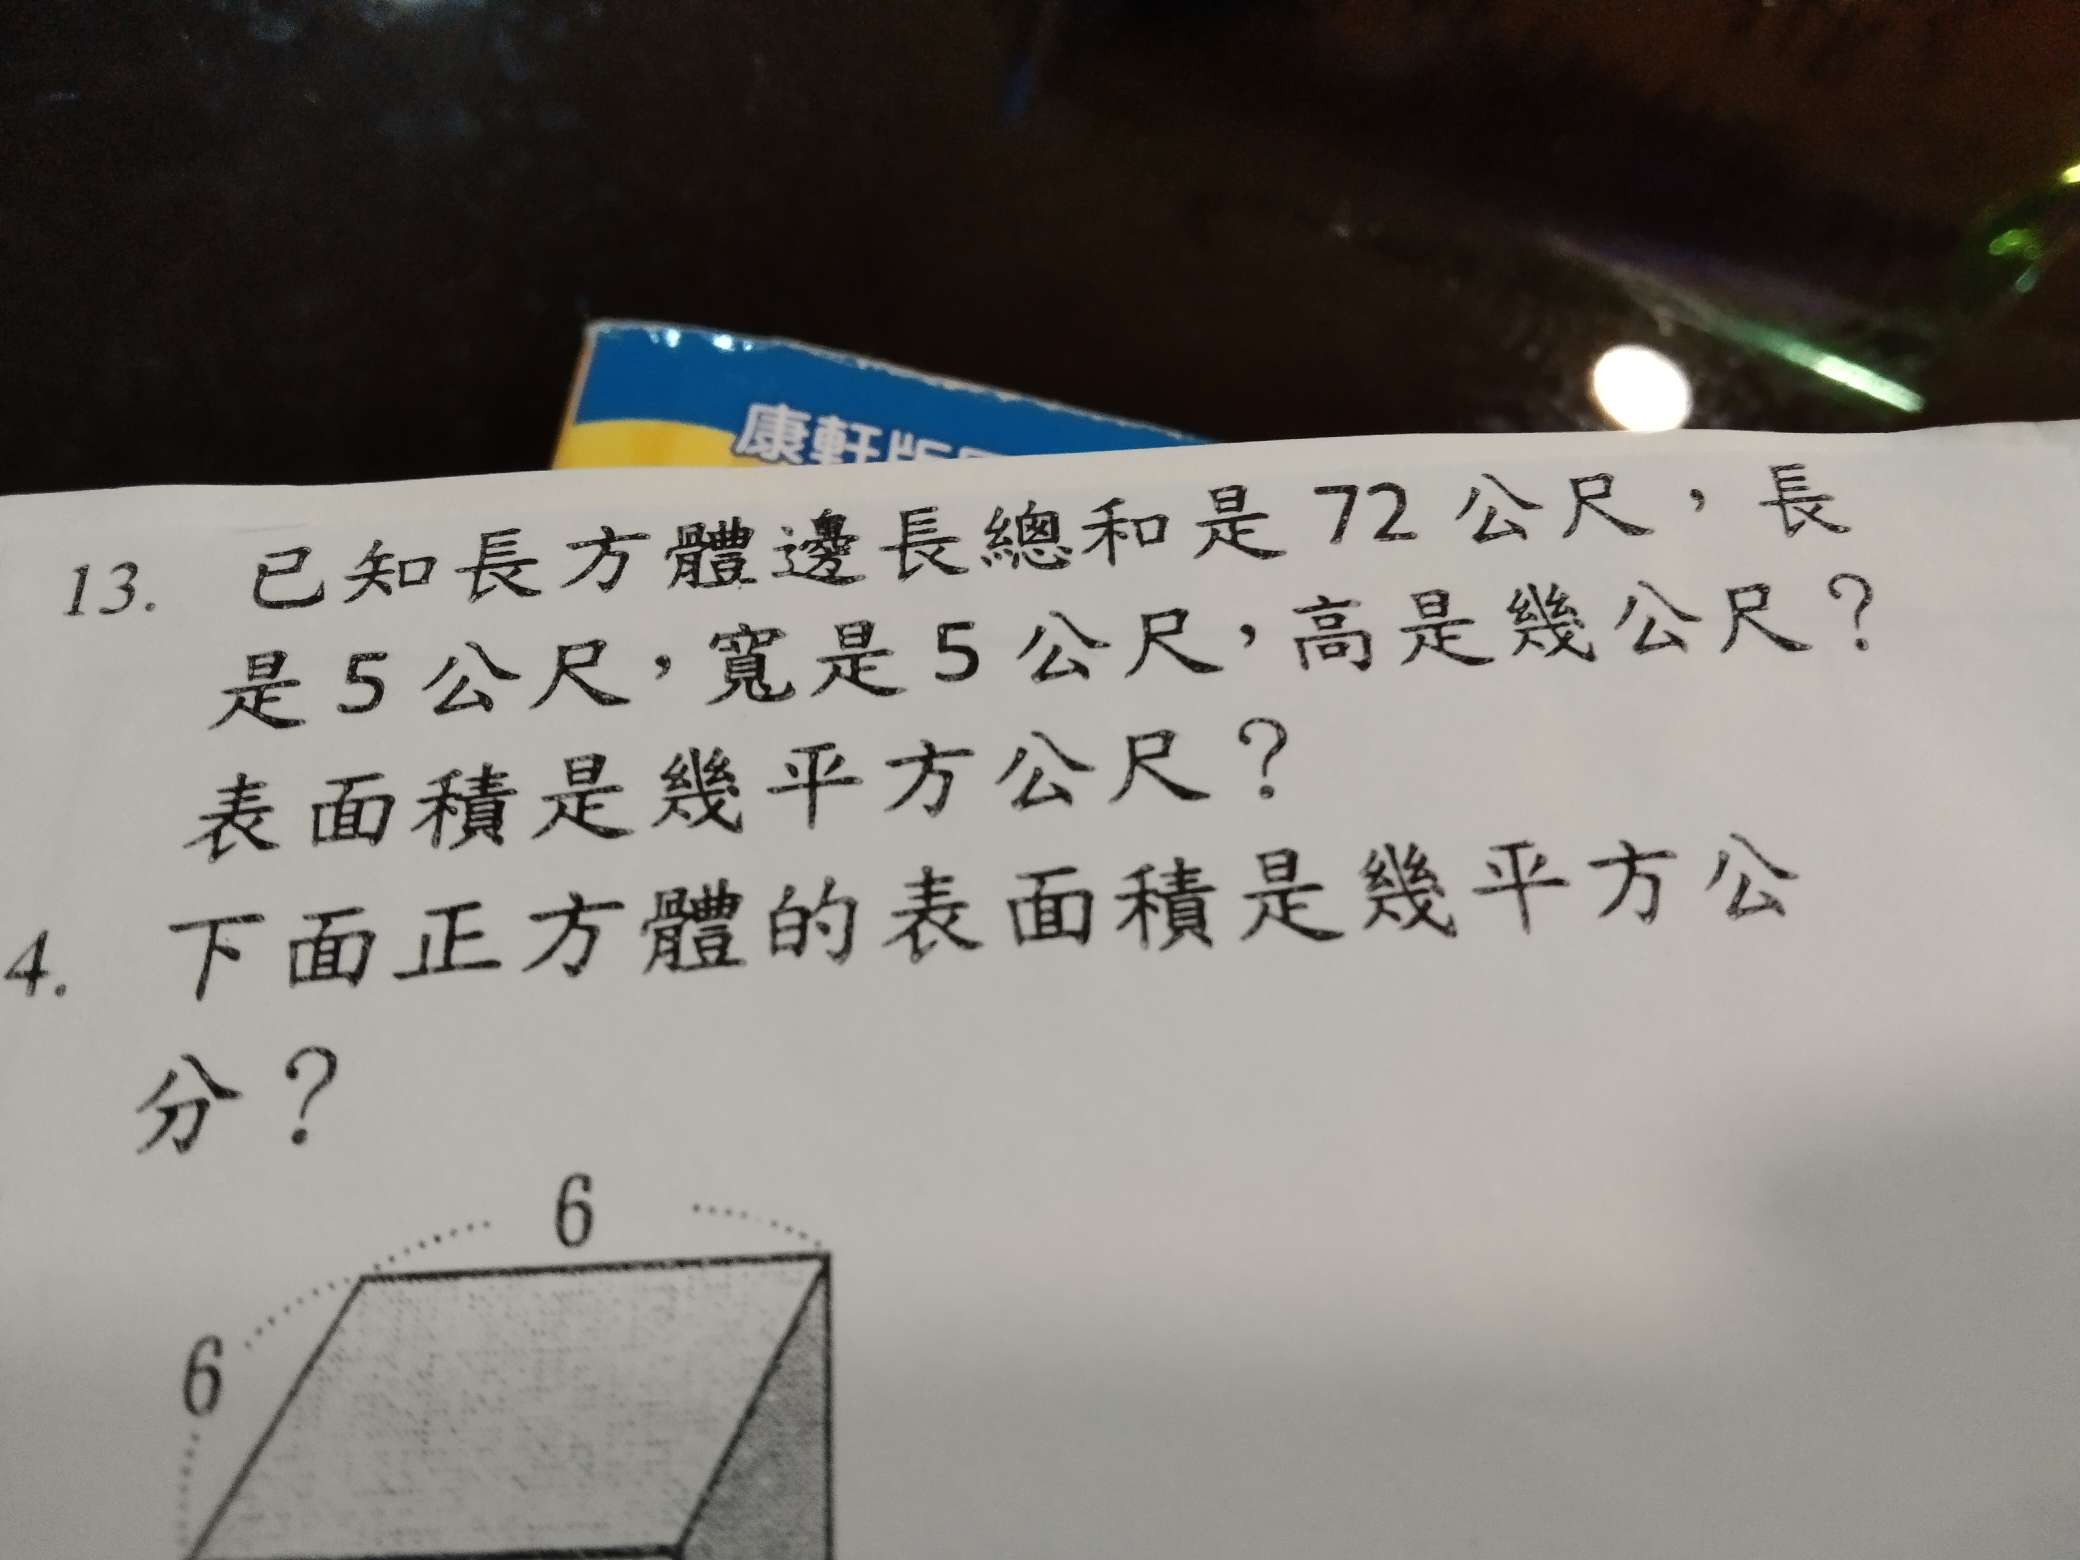 康軒版
13. 已知長方體邊長總和是 72 公尺，長
是 5 公尺，寬是 5 公尺，高是幾公尺？
表面積是幾平方公尺？
4. 下面正方體的表面積是幾平方公
分？
6
6